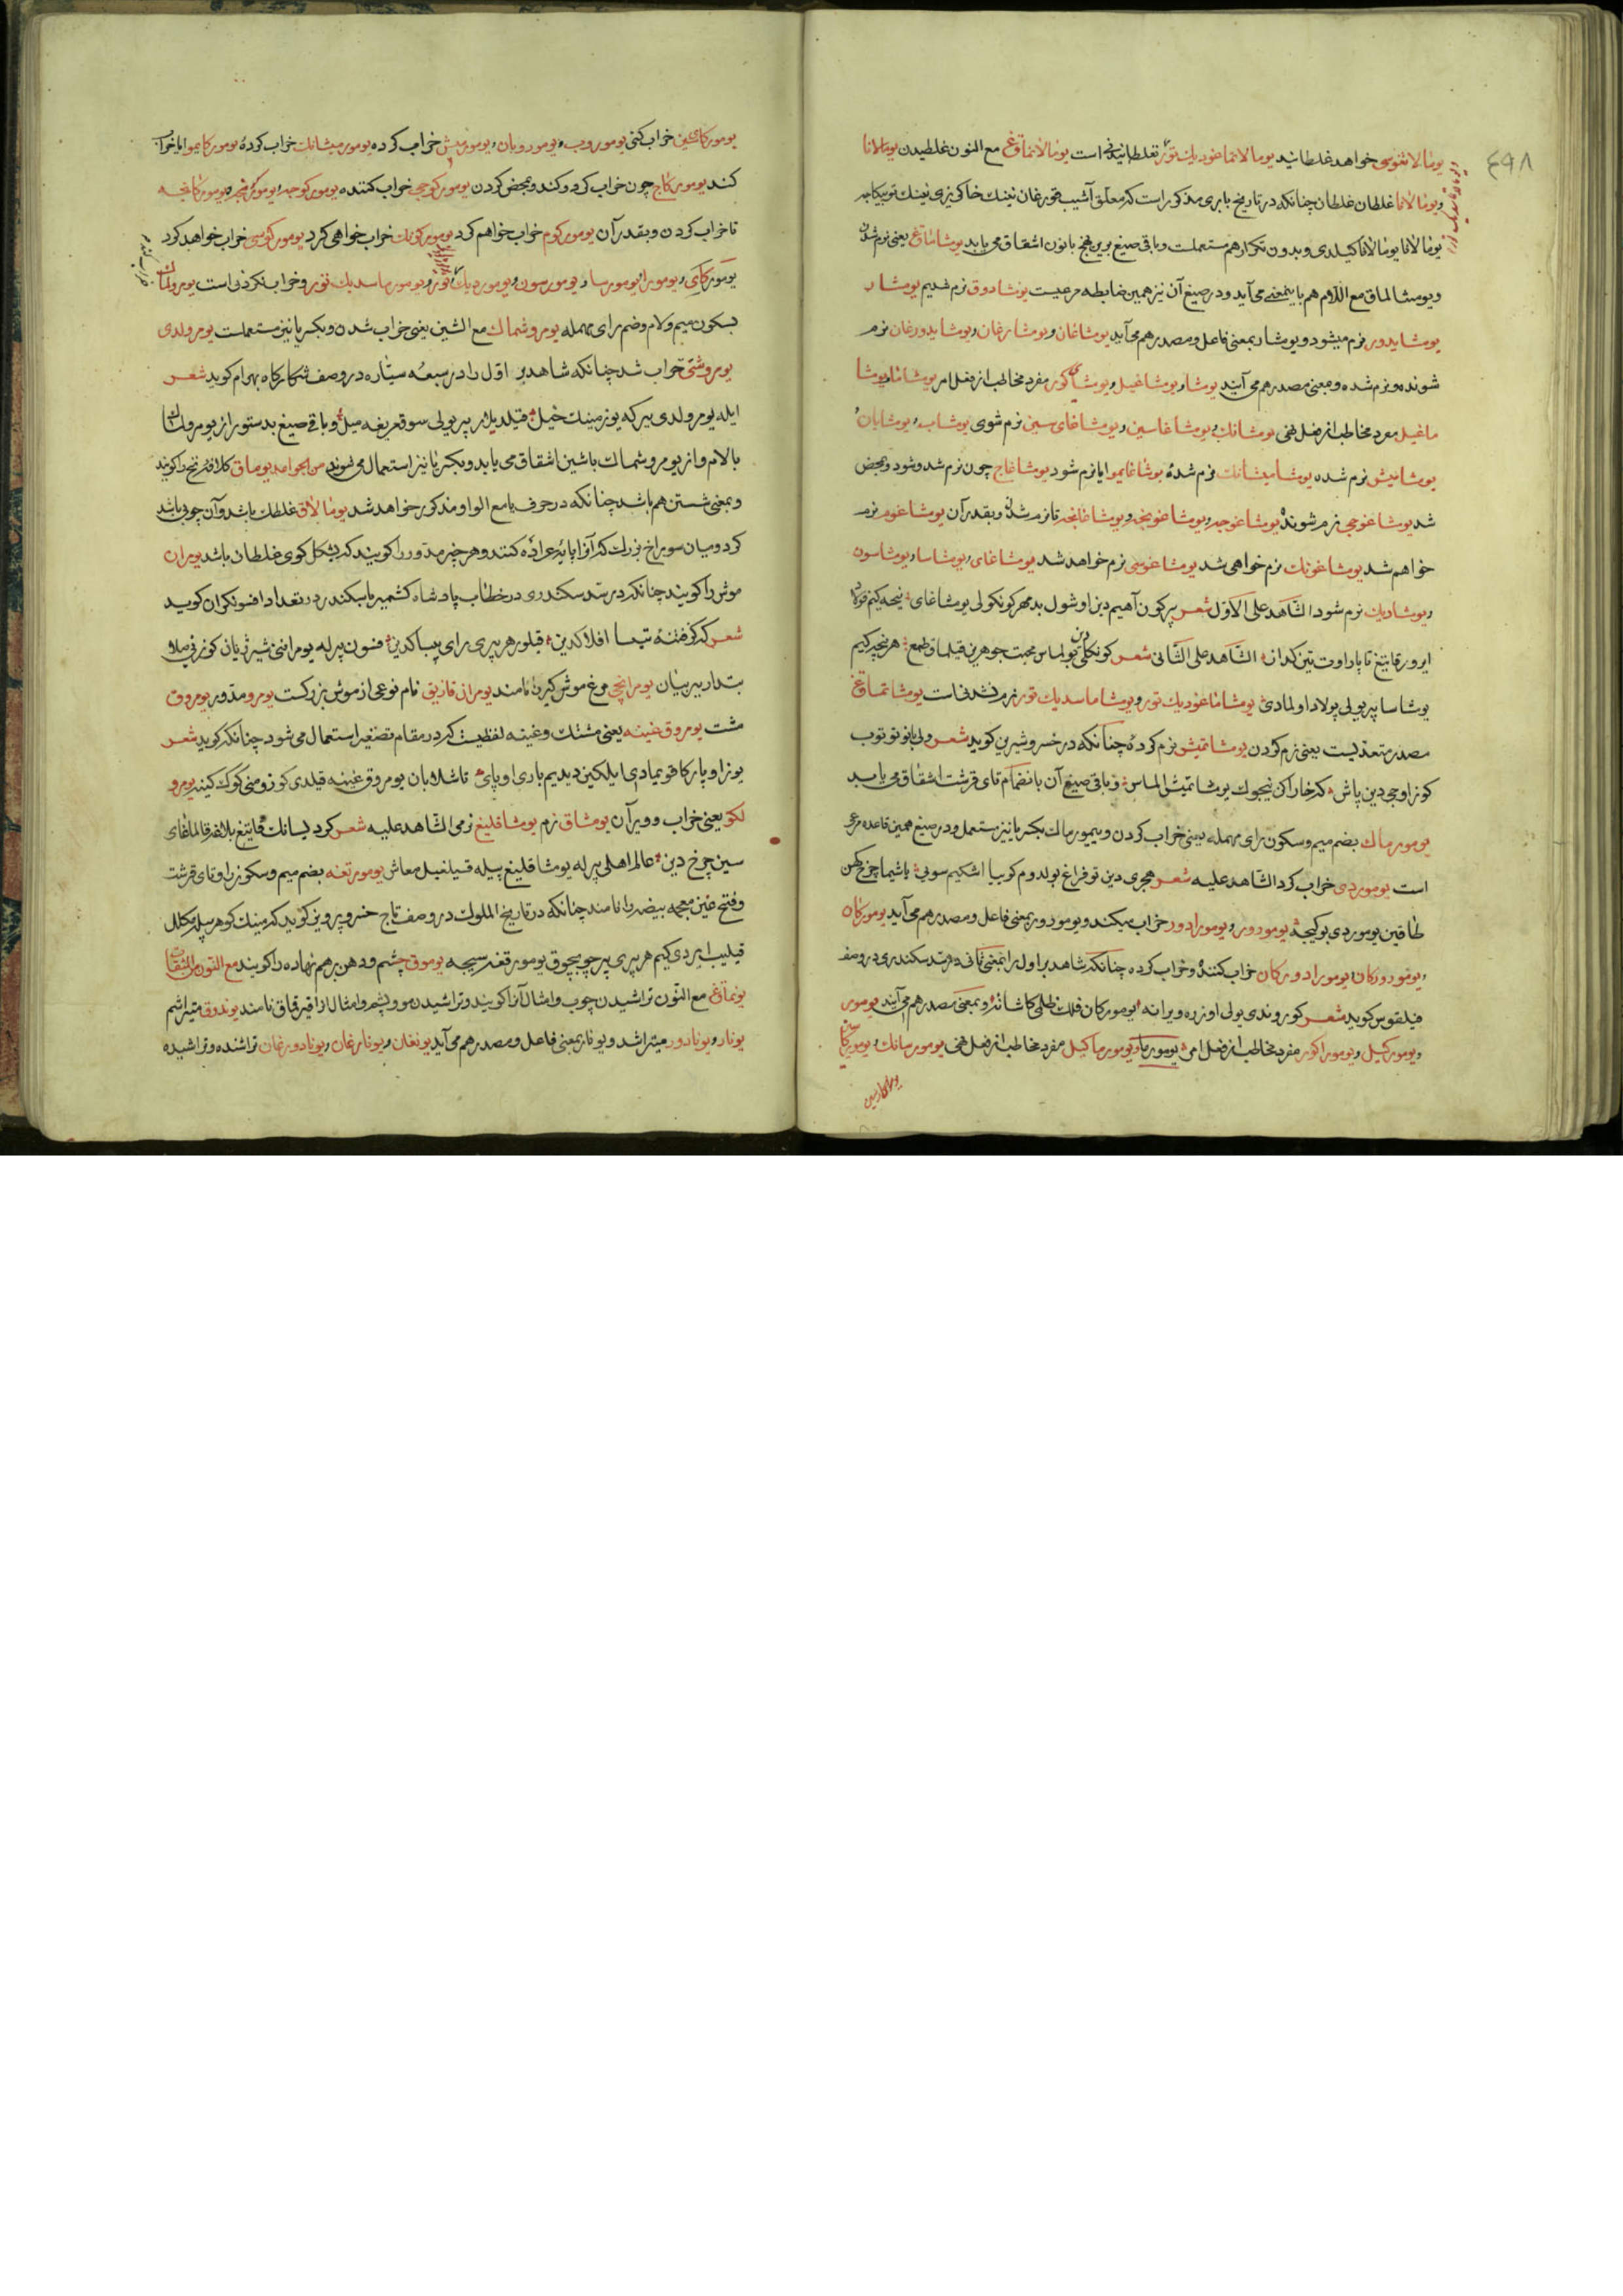 ٤٩٨
یومالاتقوسی خواهد غلطانید یومالاتماغودیك تور نغلطانیدنی است یومالانماق مع النون غلطیدن یومالانا
و یومالانا غلطان غلطان چنانکه در تاریخ بابری مذکور است که معلق آشیب قورغان نینك خاکریزی نینك
یومالانا یومالانا کیلدی و بدون تکرار هم مستعملست و باقی صیغ برین نهج با نون اشتقاق می یابد یوشاماق یعنی نرم شدن
و یومشالماق مع اللام هم باینمعنی می آید و در صیغ آن نیز همین ضابطه مرعیست یومشادوق نرم شدیم یومشار
یومشایدور نرم میشود و یومشار بمعنی فاعل و مصدر هم می آید یومشاغان و یومشارغان و یومشایدورغان نرم
شونده و نرم شده و معنی مصدر هم می آیند یومشا و یومشاغیل و یومشاکور مفرد مخاطب از فعل امر یومشاما و یومشا
ماغیل مفرد مخاطب از فعل نهی یومشانك و یومشاغاسین و یومشاغای سین نرم شوی یومشاب و یومشابان
یومشامیش نرم شده یومشامیشانك نرم شدهٔ یومشاغایموا ایا نرم شود یومشاغاچ چون نرم شد و شود و بمحض
شد یومشاغوچی نرم شونده یومشاغوچه و یومشاغونچه و یومشاغانچه تا نرم شدن و بقدر آن یومشاغوم نرم
خواهم شد یومشاغونك نرم خواهی شد یومشاغوسی نرم خواهد شد یومشاغای و یومشاسا و یومشاسون
و یومشادیك نرم شود الشاهد علی الاول شعر بیر کون آهیم دین اوشول بدمهر کونکولی یومشاغای نیچه کیم فولاد
ایرور قاتیغ تا پار اوت تین کداز الشاهد علی الثانی شعر کونکلی دین بولماس محبت جوهرین قیلماق طمع هر نیچه کیم
یومشاسا بیر یولی پولاد اولمادی یومشاماغودیك تور و یومشاماسدیك تور نرم نشدنی است یومشاتماق
مصدر متعدیست یعنی نرم کردن یومشاتمیش نرم کرده چنانکه در خسرو شیرین کوید شعر ولی بو نو توب
کوز اوچی دین پاش که خاراکن نیچوك یومشاتمیش الماس و باقی صیغ آن بانضمام تای قرشت اشتقاق می یابد
یومورماك بضم میم و سکون رای مهمله یعنی خراب کردن و ییمورماك بکسر یا نیز مستعمل و در صیغ همین قاعده مرعی
است یوموردی خراب کرد الشاهد علیه شعر هجری دین توفراغ بولدوم کوریبا اشکیم سویی باشیما چرخ کهن
طاقین یوموردی بو کیچه یومورور و یومورادور خراب میکند و یومورور بمعنی فاعل و مصدر هم می آید یومورکان
و یومورورکان و یومورادورکان خراب کننده و خراب کرده چنانکه شاهد بر اول را بمعنی ثانی در سد سکندری در وصف
فیلقوس کوید شعر کوروندی یولی اوزره ویرانه یومورکان فلك ظلمی کاشانه و بمعنی مصدر هم می آیند یومور
و یومورکیل و یومورا کور مفرد مخاطب از فعل امر یومورما و یومورماکیل مفرد مخاطب از فعل نهی یومورسانك و یومورکا سین
یومورکای سین
یومورکای سین خراب کنی یوموروب و یوموروبان و یومورمیش خراب کرده یومورمیشانك خراب کردهٔ یومورکایموا ایا خراب
کند یومورکاچ چون خراب کرد و کند و بمحض کردن یومورکوچی خراب کننده یومورکوچه و یومورکونچه و یومورکانچه
تا خراب کردن و بقدر آن یومورکوم خراب خواهم کرد یومورکونك خراب خواهی کرد یومورکوسی خراب خواهد کرد
یومورکای و یومورا و یومورسا و یومورسون و یوموردیك و یومورماسدیك تور و خراب نکردنی است یومرولماق
بسکون میم و لام و ضم رای مهمله یومروشماك مع الشین یعنی خراب شدن و بکسر یا نیز مستعملست یومرولدی
یومروشتی خراب شد چنانکه شاهد بر اول را در سبعه سیاره در وصف شکارکاه بهرام کوید شعر
ایله یومرولدی بیر که یوزمینك خیل قیلدیلار بیر یولی سوق یریغه میل و باقی صیغ بدستور از یومرولماق
بالام و از یومروشماك باشین اشتقاق می یابد و بکسر یا نیز استعمال می شوند من الجوامد یوماق کلافه نخ را کویند
و بمعنی شستن هم باشد چنانکه در حرف یا مع الواو مذکور خواهد شد یومالاق غلطك باشد و آن چوبی باشد
کرد و میان سوراخ بزرك که آنرا پایهٔ عراده کنند و هر چیز مدور را کویند که بشکل کوی غلطان باشد یومران
موش را کویند چنانکه در سد سکندری در خطاب پادشاه کشمیر با سکندر در تعداد افسونکران کوید
شعر که کر فتنه تیسا افلاکدین قیلور هر پری رای پیساکدین فسون بیرله یومراننی شیر ژیان کوزنی سالا
بتدار ببر بیان یومرانچی مرغ موش کیر را نامند یومران قازیق نام نوعی از موش بزرکست یومرو مدور یومروق
مشت یومروق غینه یعنی مشتك و غینه لفظیست که در مقام تصغیر استعمال می شود چنانکه کوید شعر
یوز اوپارکا قویمادی ایلکین دیدیم باری اوپای تاشلابان یومروق غینه قیلدی کوزومنی کوك کینه یومرو
لکو یعنی خراب و ویران یومشاق نرم یومشاقلیغ نرمی الشاهد علیه شعر کردیسانك قاتیغ بلالغه قالماغای
سین چرخ دین عالم اهلی بیرله یومشاقلیغ بیله قیلغیل معاش یومورتغه بضم میم و سکون را و تای قرشت
و فتح غین معجمه بیضه را نامند چنانکه در تاریخ الملوك در وصف تاج خسرو پرویز کوید که مینك کوهر بیله مکلل
قیلیب ایردی کیم هر بیری بیر چوچوق یومورتغه سیچه یوموق چشم و دهن برهم نهاده را کویند مع النون المشتقات
یونماق مع النون تراشیدن چوب و امثال آنرا کویند و تراشیدن مو و پشم و امثال آنرا قیرقماق نامند یوندوق میتراشم
یونار و یونادور میتراشد و یونار بمعنی فاعل و مصدر هم می آید یونغان و یونارغان و یونادورغان تراشنده و تراشیده